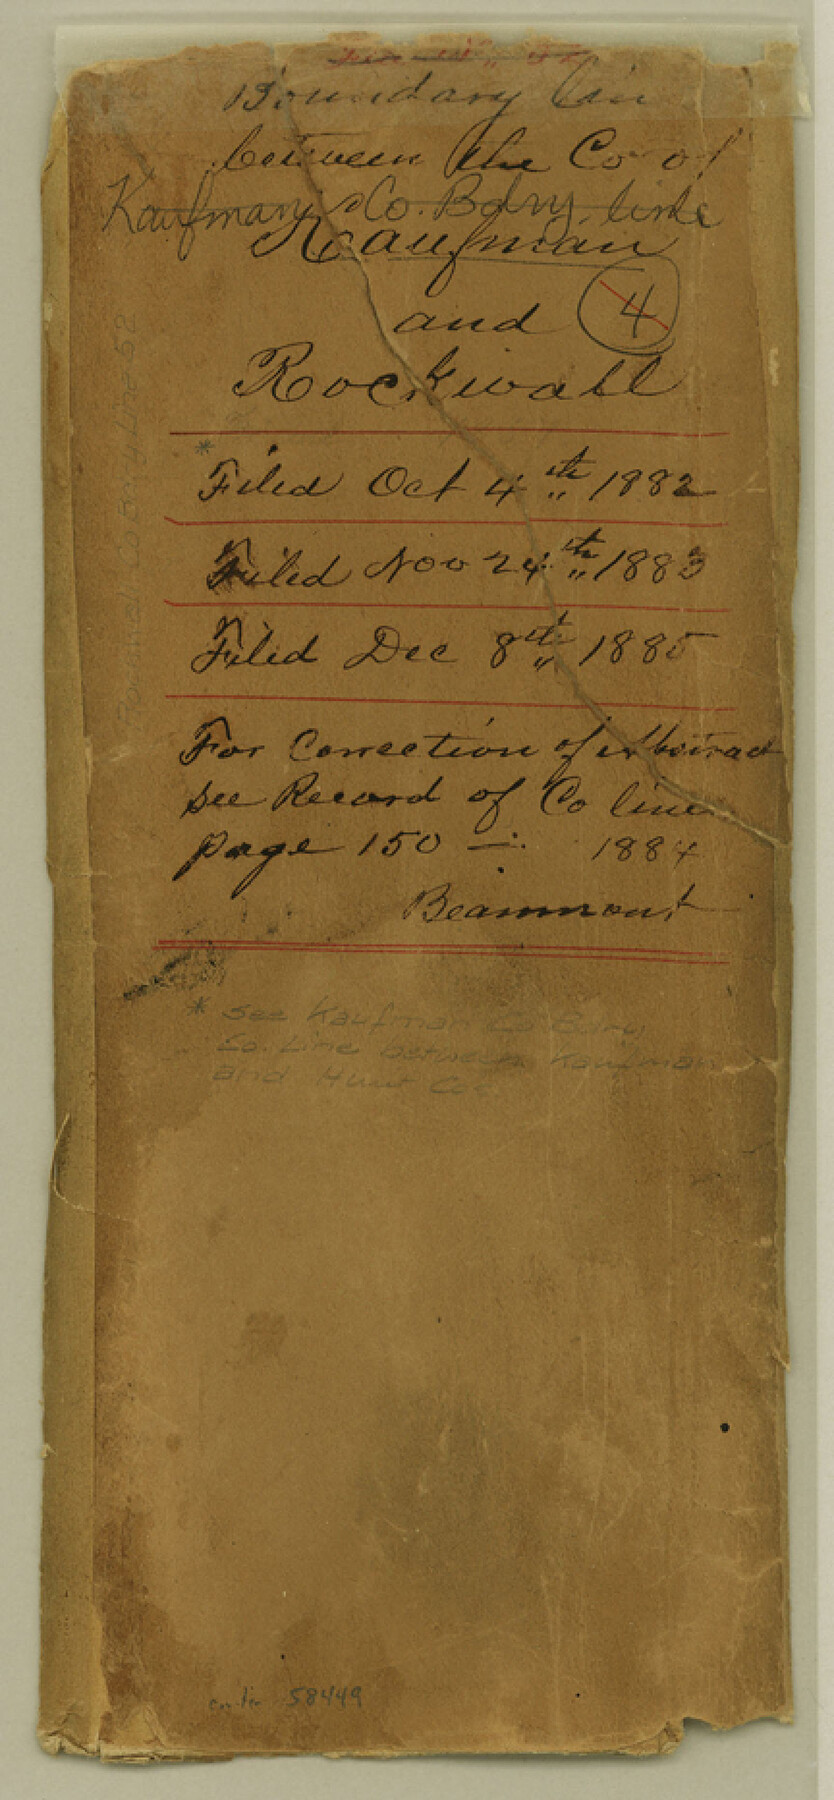 Boundary Lin
between the Co of
Kaufman Co. Bdry. line
Kaufman
and 4
Rockwall
* Filed Oct 4th 1882
Filed Nov 24th 1883
Filed Dec 8th 1885
For Correction of Abstract
see Record of Co line
page 150 —. 1884
Beaumont
* See Kaufman Co Bdry
Co. Line between Kaufman
and Hunt Co.
58449